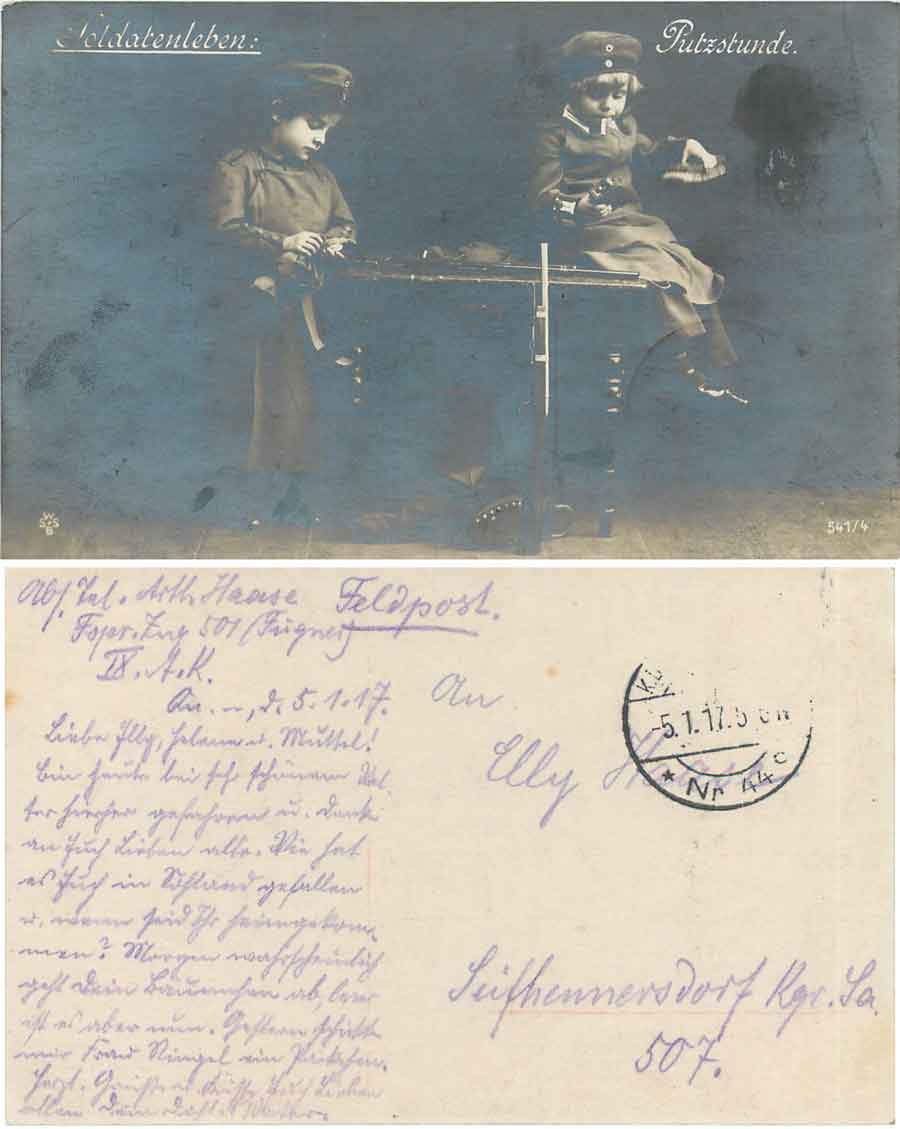 Soldatenleben:
Putzstunde.
W
S S
B
541/4
Abs. Tel. Arth. Haase
Feldpost.
Fspr. Zug 501 (Fügner)
IX. A. K.
d. 5.1.17.
Liebe Elly, Helene u. Muttel!
Bin heute bei sehr schönem Wet-
ter hierher gefahren u. denke
an Euch Lieben alle. Wie hat
es Euch in Sohland gefallen
u. wann seid Ihr heimgekom-
men? Morgen wahrscheinlich
geht Dein Bäumchen ab, leer
ist es aber nun. Gestern schickte
mir Frau Ringel ein Päckchen.
Herzl. Grüße u. Küsse Euch Lieben
allen Dein Vater.
An
Elly Haase
Seifhennersdorf Kgr. Sa.
507.
-5.1.17. 5
* Nr 44 c